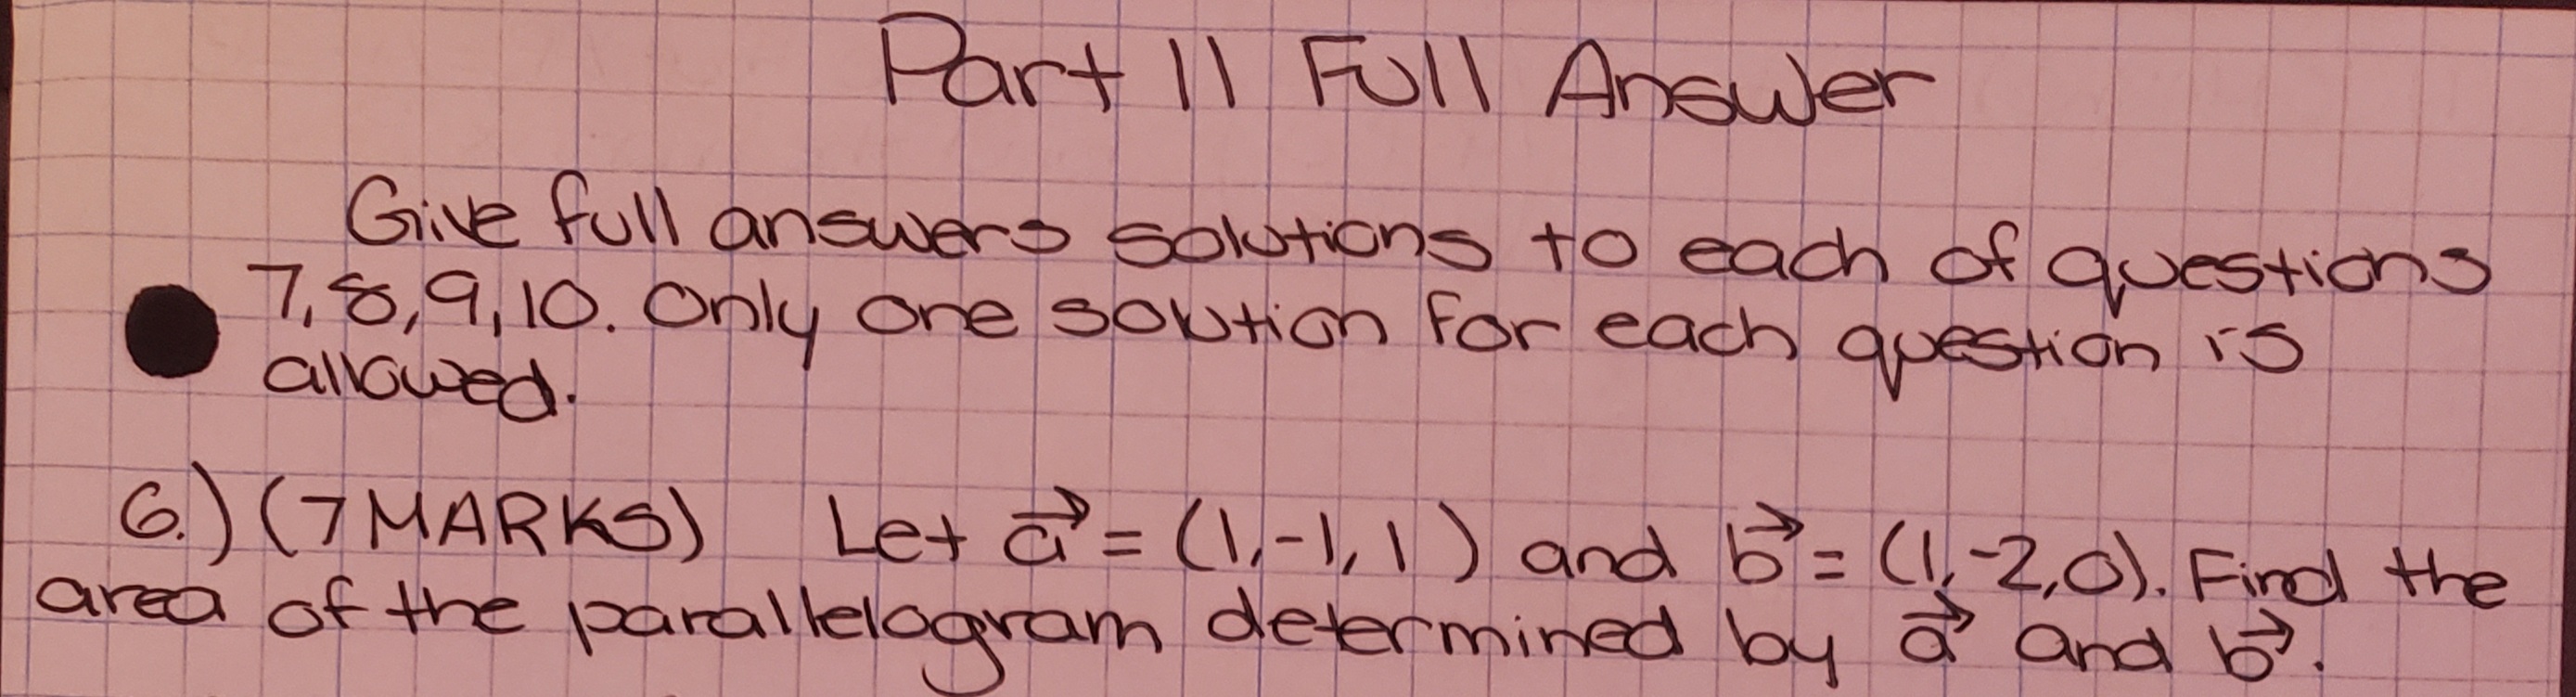 Part 11 Full Answer
Give full answers solutions to each of questions
7,8,9,10. Only one solution for each question is
allowed.
6.) (7 MARKS) Let a⃗ = (1,-1,1) and b⃗ = (1,-2,0). Find the
area of the parallelogram determined by a⃗ and b⃗.